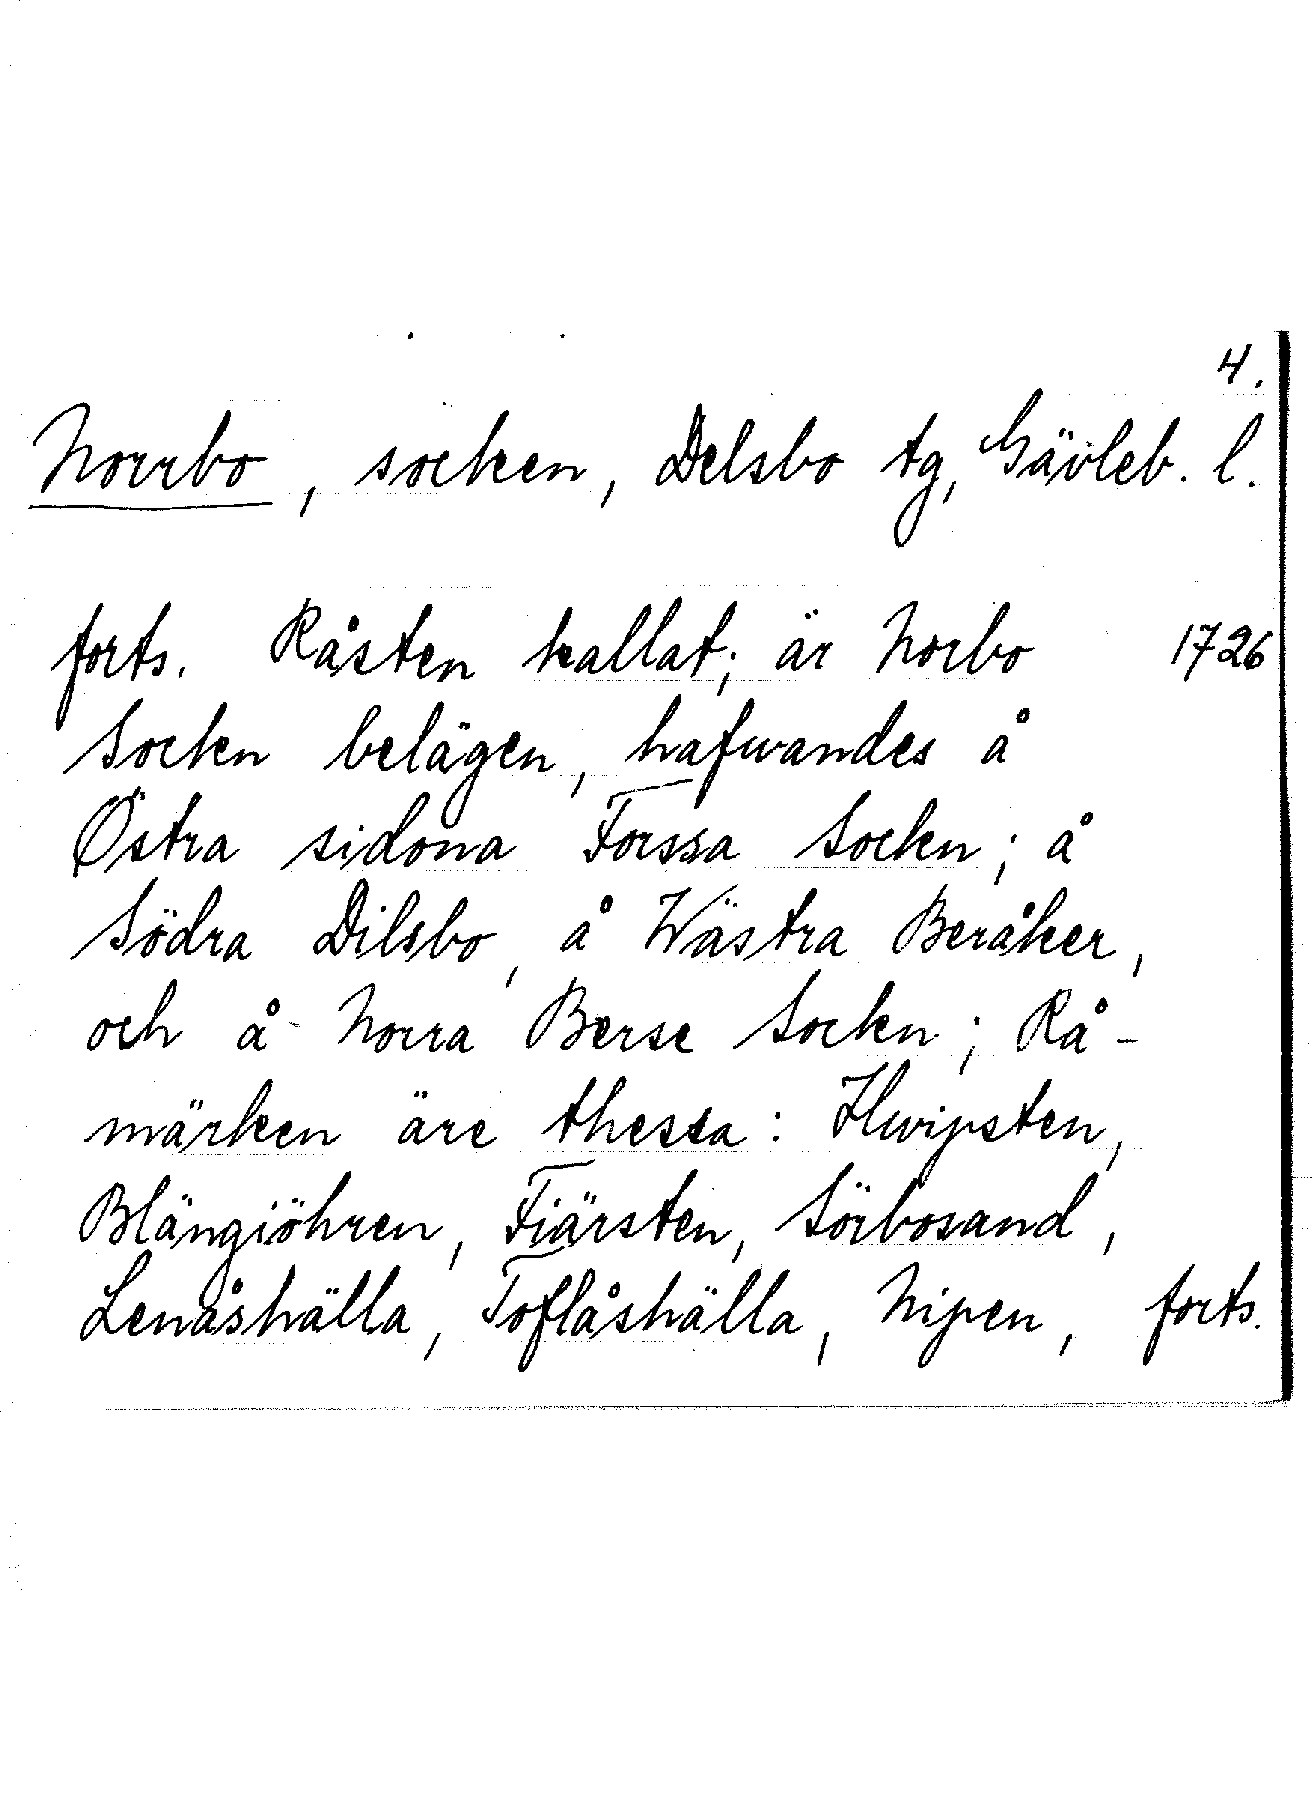 4.
Norrbo, socken, Delsbo tg, Gävleb. l.
forts. Råsten kallat; är Norbo 1726
Socken belägen, hafwandes å
Östra sidona Forssa Socken; å
Södra Dilsbo, å Wästra Beråker,
och å Norra Berse Socken; Rå-
märken äre thessa: Hwipsten,
Blängiöhren, Fiärsten, Sörbosand,
Lenåshälla, Toflåshälla, Nipen, forts.